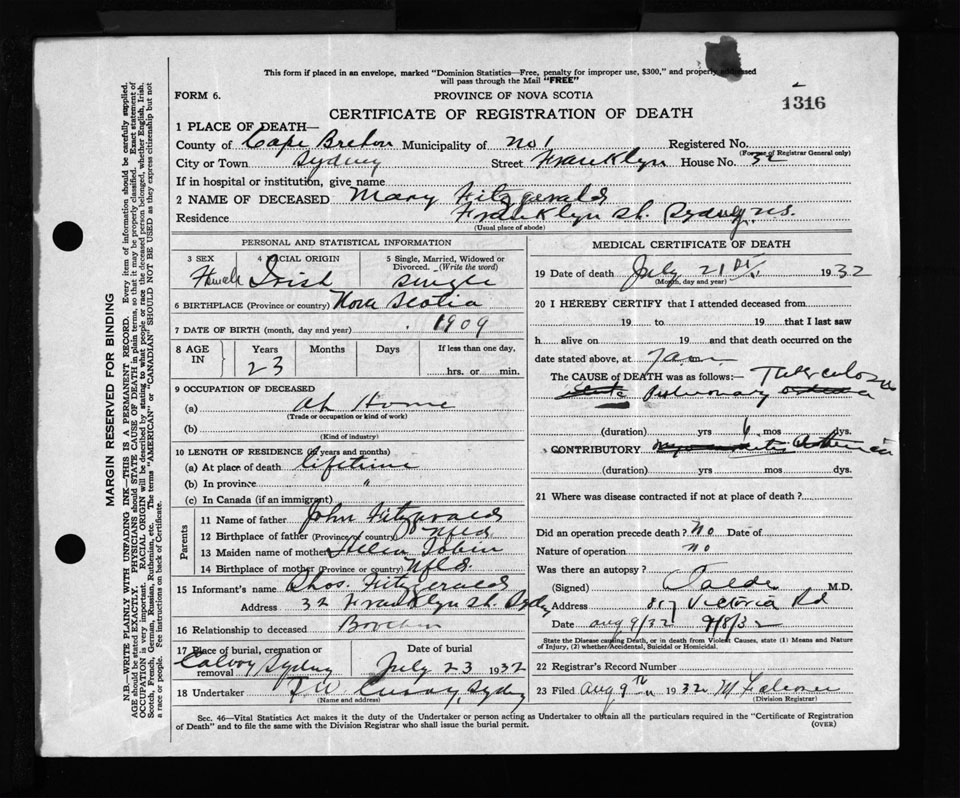 This form if placed in an envelope, marked "Dominion Statistics—Free, penalty for improper use, $300," and properly addressed
will pass through the Mail "FREE"
FORM 6.
PROVINCE OF NOVA SCOTIA
1316
CERTIFICATE OF REGISTRATION OF DEATH
1 PLACE OF DEATH—
County of Cape Breton Municipality of No 1 Registered No.
(For use of Registrar General only)
City or Town Sydney Street Franklyn House No. 32
If in hospital or institution, give name
2 NAME OF DECEASED Mary Fitzgerald
Residence Franklyn St. Sydney, N.S.
(Usual place of abode)
PERSONAL AND STATISTICAL INFORMATION
3 SEX 4 RACIAL ORIGIN 5 Single, Married, Widowed or
Divorced. (Write the word)
Female Irish Single
6 BIRTHPLACE (Province or country) Nova Scotia
7 DATE OF BIRTH (month, day and year) 1909
8 AGE IN Years Months Days If less than one day,
23 hrs. or min.
9 OCCUPATION OF DECEASED
(a) At Home
(Trade or occupation or kind of work)
(b)
(Kind of industry)
10 LENGTH OF RESIDENCE (in years and months)
(a) At place of death lifetime
(b) In province "
(c) In Canada (if an immigrant)
Parents
11 Name of father John Fitzgerald
12 Birthplace of father (Province or country) Nfld.
13 Maiden name of mother Helen Tobin
14 Birthplace of mother (Province or country) Nfld.
15 Informant's name Thos. Fitzgerald
Address 32 Franklyn St. Sydney
16 Relationship to deceased Brother
17 Place of burial, cremation or removal Date of burial
Calvary Sydney July 23 1932
18 Undertaker F.W. Curry, Sydney
(Name and address)
MEDICAL CERTIFICATE OF DEATH
19 Date of death July 21st 1932
(Month, day and year)
20 I HEREBY CERTIFY that I attended deceased from
19 to 19 that I last saw
h alive on 19 and that death occurred on the
date stated above, at 7 a.m.
The CAUSE of DEATH was as follows:— Tuberculosis
Pulmonary
(duration) yrs 6 mos dys.
CONTRIBUTORY
(duration) yrs. mos dys.
21 Where was disease contracted if not at place of death?
Did an operation precede death? No Date of
Nature of operation no
Was there an autopsy?
(Signed) M.D.
Address 817 Victoria Rd
Date Aug 9/32 9/8/32
State the Disease causing Death, or in death from Violent Causes, state (1) Means and Nature
of Injury, (2) whether Accidental, Suicidal or Homicidal.
22 Registrar's Record Number
23 Filed Aug 9th 1932
(Division Registrar)
Sec. 46—Vital Statistics Act makes it the duty of the Undertaker or person acting as Undertaker to obtain all the particulars required in the "Certificate of Registration
of Death" and to file the same with the Division Registrar who shall issue the burial permit.
(OVER)
MARGIN RESERVED FOR BINDING
N.B.—WRITE PLAINLY WITH UNFADING INK—THIS IS A PERMANENT RECORD. Every item of information should be carefully supplied.
AGE should be stated EXACTLY. PHYSICIANS should STATE CAUSE OF DEATH in plain terms, so that it may be properly classified. Exact statement of
OCCUPATION is very important. RACIAL ORIGIN will be described by stating to what people or race the deceased person belonged, whether English, Irish,
Scotch, French, German, Russian, Ruthenian, etc. The terms "AMERICAN" or "CANADIAN" SHOULD NOT BE USED as they express citizenship but not
a race or people. See instructions on back of Certificate.